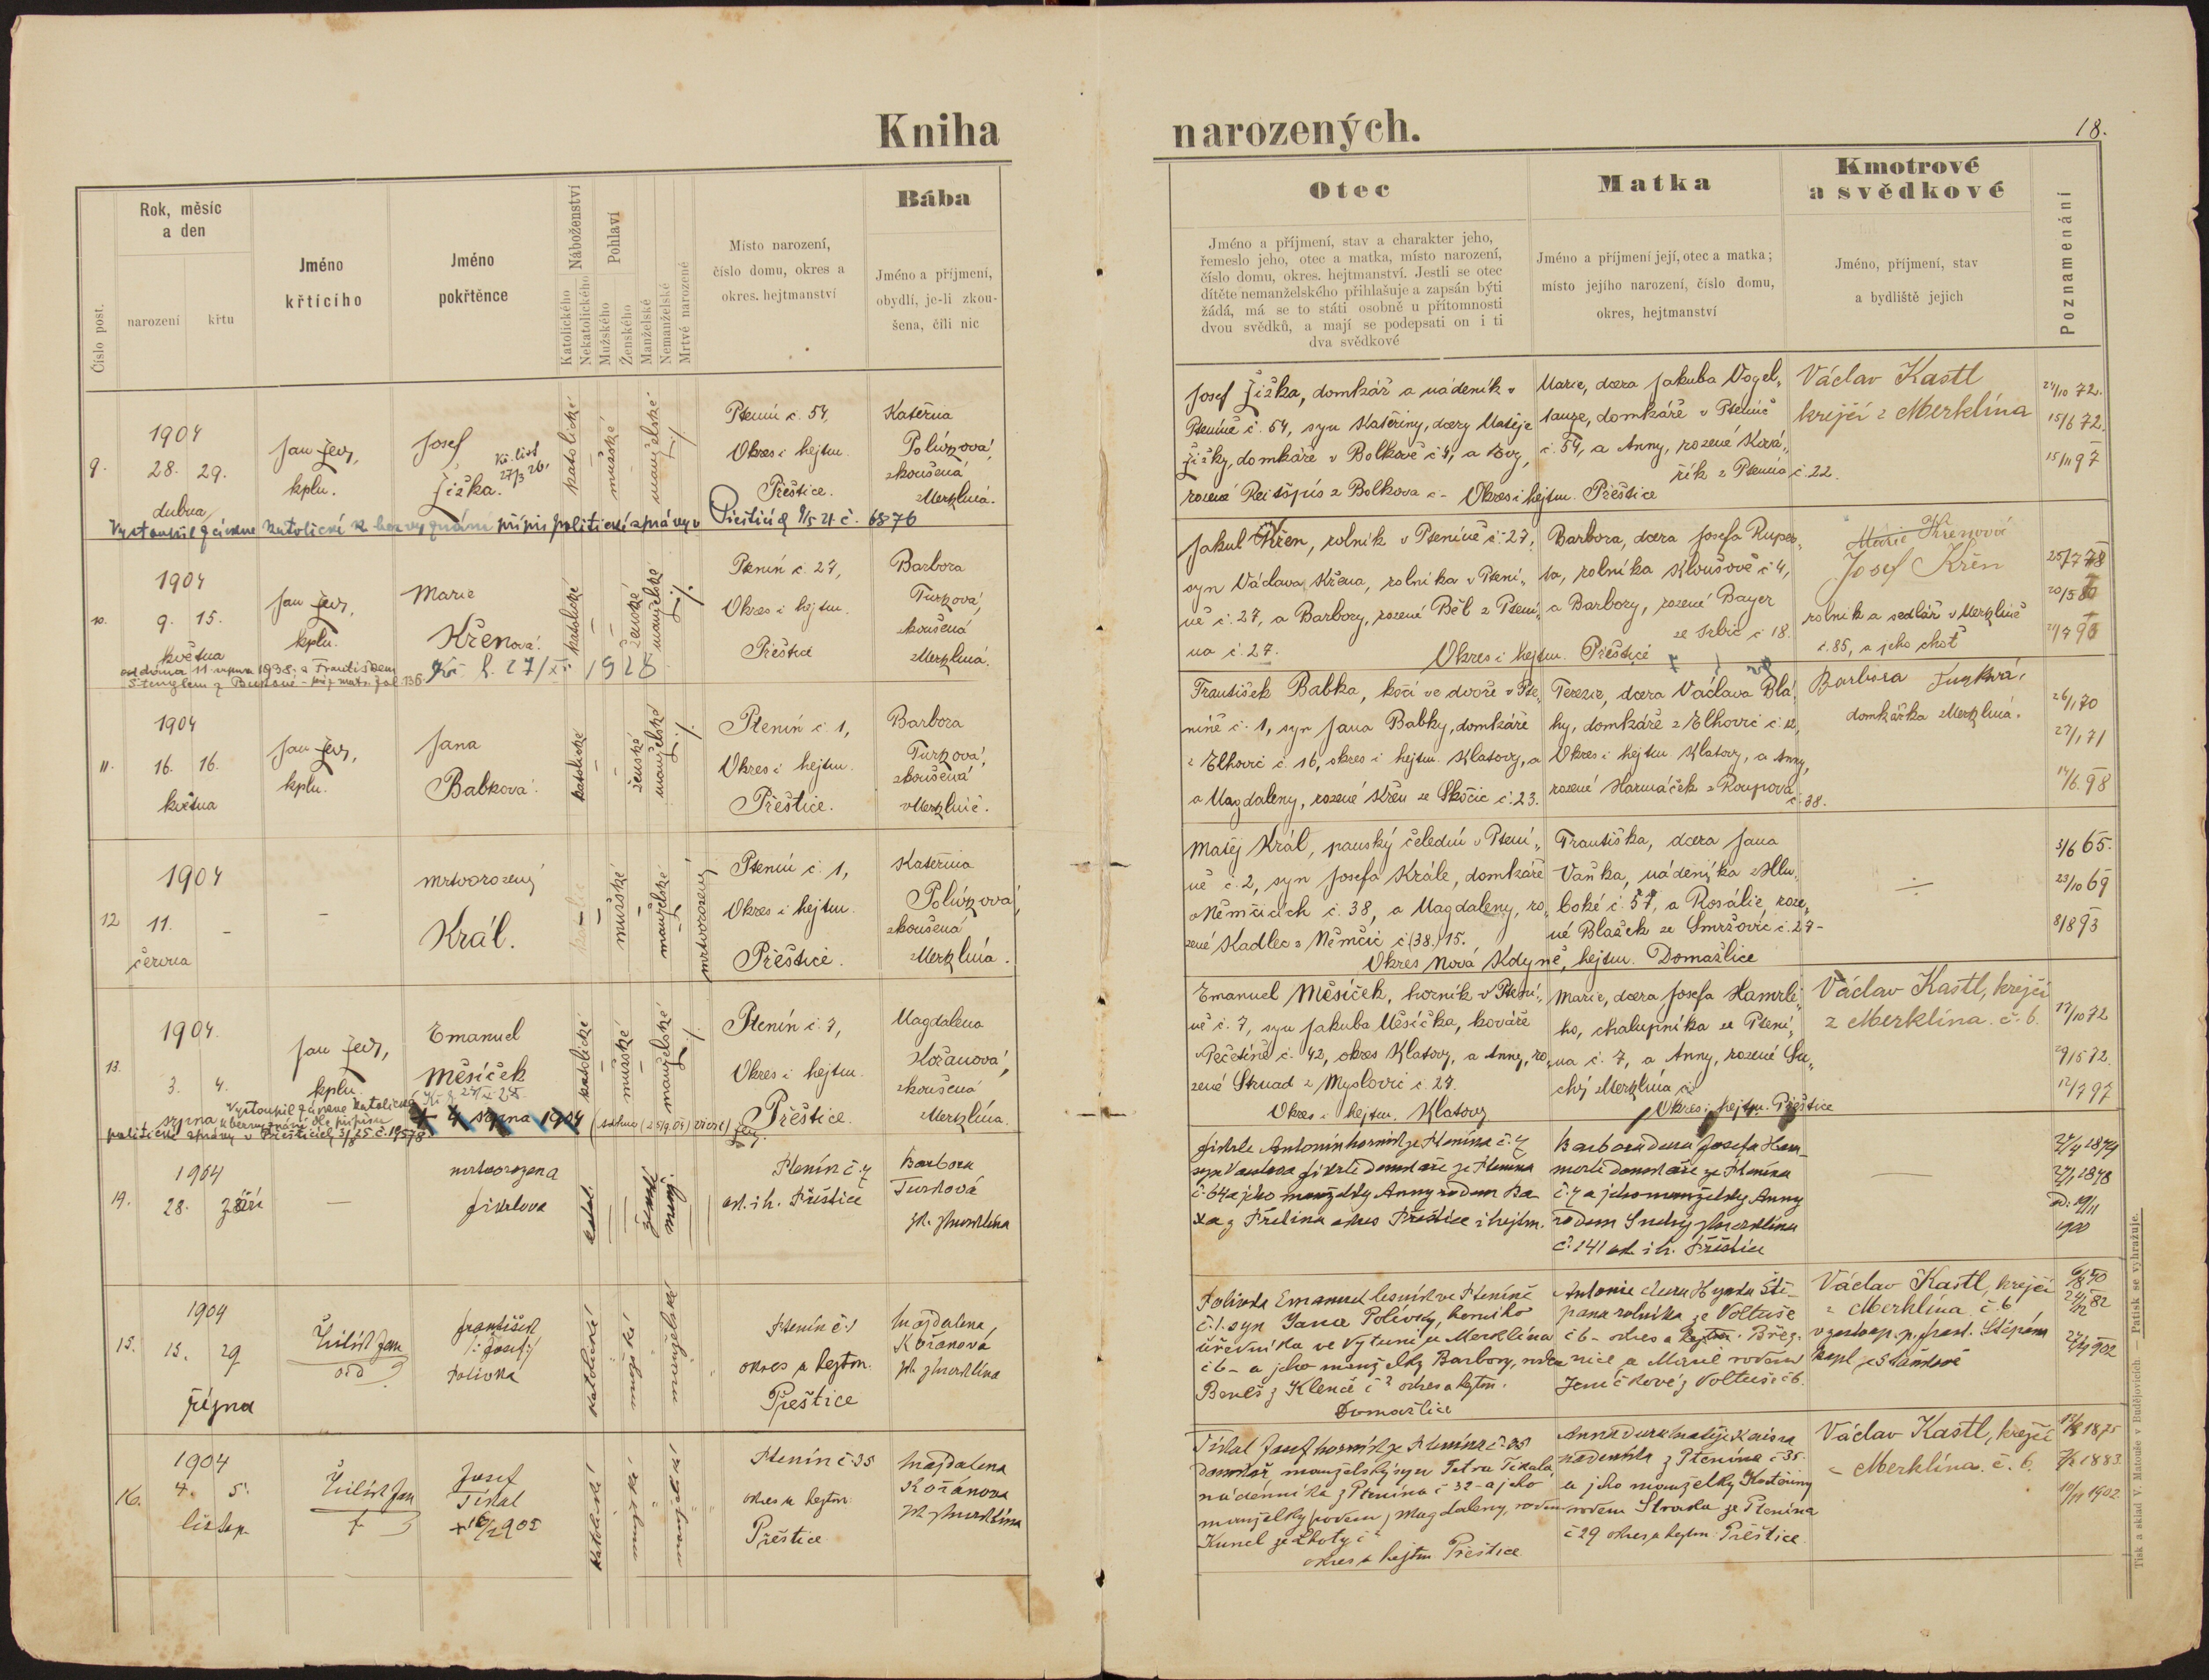 Kniha narozených.
18.
Číslo post.
Rok, měsíc
a den
narození
křtu
Jméno
křtícího
Jméno
pokřtěnce
Náboženství
Katolického
Nekatolického
Pohlaví
Mužského
Ženského
Manželské
Nemanželské
Mrtvé narozené
Místo narození,
číslo domu, okres a
okres. hejtmanství
Bába
Jméno a příjmení,
obydlí, je-li zkou-
šena, čili nic
Otec
Jméno a příjmení, stav a charakter jeho,
řemeslo jeho, otec a matka, místo narození,
číslo domu, okres. hejtmanství. Jestli se otec
dítěte nemanželského přihlašuje a zapsán býti
žádá, má se to státi osobně u přítomnosti
dvou svědků, a mají se podepsati on i ti
dva svědkové
Matka
Jméno a příjmení její, otec a matka;
místo jejího narození, číslo domu,
okres, hejtmanství
Kmotrové
a svědkové
Jméno, příjmení, stav
a bydliště jejich
Poznamenání
9.
1904
28. 29.
dubna
Jan
kplu.
Josef
Žižka.
Kř. list
27/3 26.
katolické
mužské
manželské
Ptenín č. 54,
Okres i hejtm.
Přeštice.
Kateřina
Polívková,
zkoušená
z Merklína.
Vystoupil z církve katolické k bezvyznání přípis politické správy v Přešticích 9/5 21 č. 6876
Josef Žižka, domkář a nádeník v
Pteníně č. 54, syn Kateřiny, dcery Matěje
Žižky, domkáře v Bolkově č. 4, a
rozené z Bolkova č. – Okres i hejtm. Přeštice
Marie, dcera Jakuba Vogel-
tanze, domkáře v Pteníně
č. 54, a Anny, rozené Ková-
řík z Ptenína č. 22.
Václav Kastl
krejčí z Merklína
24/10 72.
15/6 72.
15/11 97
10.
1904
9. 15.
května
Jan
kplu.
Marie
Křenová.
katolické
ženské
manželské
Ptenín č. 27,
Okres i hejtm.
Přeštice
Barbora
Turková,
zkoušená
z Merklína.
oddána 11 srpna 1938 s Františkem
Kř. l. 27/XI 1928
Jakub Křen, rolník v Pteníně č. 27,
syn Václava Křena, rolníka v Ptení-
ně č. 27, a Barbory, rozené Běl z Ptení-
na č. 27.
Okres i hejtm. Přeštice
Barbora, dcera Josefa Ruper-
ta, rolníka z Kloušově č. 4,
a Barbory, rozené Bayer
ze Srbic č. 18.
Marie Křenová
Josef Křen
rolník a sedlář v Merklíně
č. 85, a jeho choť
25/7 78
20/5 80
11.
1904
16. 16.
května
Jan
kplu.
Jana
Babková.
katolické
ženské
manželské
Ptenín č. 1,
Okres i hejtm.
Přeštice.
Barbora
Turková,
zkoušená
v Merklíně.
František Babka, kočí ve dvoře v Pte-
níně č. 1, syn Jana Babky, domkáře
z Elhovic č. 16, okres i hejtm. Klatovy, a
a Magdaleny, rozené Křen ze Skočic č. 23.
Terezie, dcera Václava Blá-
hy, domkáře z Elhovic č.
Okres i hejtm. Klatovy, a Anny,
rozené Harmáček z Roupova
č. 38.
Barbora Turková,
domkářka z Merklína.
26/1 70
27/1 71
14/6. 98
12
1904
11.
června
mrtvorozený
Král.
mužské
manželské
mrtvorozený
Ptenín č. 1,
Okres i hejtm.
Přeštice.
Kateřina
Polívková,
zkoušená
z Merklína.
Matěj Král, panský čeledín v Ptení-
ně č. 2, syn Josefa Krále, domkáře
v Němčicích č. 38, a Magdaleny, ro-
zené Kadlec z Němčic č. (38.) 15.
Okres Nová Kdyně, hejtm. Domažlice
Františka, dcera Jana
Vaňka, nádeníka z Hlu-
boké č. 57, a Rosálie, roze-
né Blažek ze Smržovic č. 27 –
3/6 65.
23/10 69
8/8 93
13.
1904.
3. 4.
srpna
Jan
kplu.
Emanuel
Měsíček
katolické
mužské
manželské
Ptenín č. 7,
Okres i hejtm.
Přeštice.
Magdalena
Kořanová,
zkoušená
z Merklína.
Vystoupil z církve katolické
k bezvyznání dle přípisu
politické správy v Přešticích
4 srpna 1904
Emanuel Měsíček, horník v Ptení-
ně č. 7, syn Jakuba Měsíčka, kováře
v Pečetíně č. 42, okres Klatovy, a Anny, ro-
zené Strnad z Myslovic č. 27.
Okres i hejtm. Klatovy
Marie, dcera Josefa Hamrle-
ho, chalupníka ze Ptení-
na č. 7, a Anny, rozené Su-
chý z Merklína
Okres i hejtm. Přeštice
Václav Kastl, krejčí
z Merklína. č. 6.
17/10 72
29/5 72.
12/7 97
14.
1904
28. září
mrtvorozena
Fikrlova
katol.
ženské
manž.
Ptenín č. 7
ok. i h. Přeštice
Barbora
Turková
zk. z Merklína
Fikrle Antonín horník ze Ptenína č. 7
syn Václava Fikrle domkáře ze Ptenína
č. 64 a jeho manželky Anny rodem
z Přelina okres Přeštice i hejtm.
Barbora dcera Josefa Ham-
merle domkáře ze Ptenína
č. 7 a jeho manželky Anny
rodem Suchý z Merklína
č. 141 ok. i h. Přeštice
1874
1878
1900
15.
1904
15. 29
října
Žilík Jan
František
/: Josef :/
Polívka
katolické
mužské
manželské
Ptenín č. 1
okres a hejtm.
Přeštice
Magdalena
Kořanová
zk. z Merklína
Polívka Emanuel lesník ve Pteníně
č. 1. syn Jana Polívky, horního
úředníka ve Vytuni z Merklína
č. 6 – a jeho manželky Barbory, rodem
Beneš z Klenče č. ? okres a hejtm.
Domažlice
Antonie dcera Hynka Ště-
pana rolníka ze Voltuše
č. 6 – okres a hejtm. Břez-
nice a Marie rodem
Jeničkové z Voltuše č. 6.
Václav Kastl, krejčí
z Merklína č. 6
v zastoup. p. Frant. Štěpána
kapl. ze Staňkově
16.
1904
4. 5.
listop.
Žilík Jan
Josef
Tikal
+ 16/2 905
katolické
mužské
manželské
Ptenín č. 35
okres a hejtm.
Přeštice
Magdalena
Kořánova
zk. z Merklína
Tikal Josef horník ze Ptenína č. 35
domkář, manželský syn Petra Tikala
nádenníka z Ptenína č. 32 – a jeho
manželky Magdaleny, rodem
Kunel ze Lhoty č. ?
okres a hejtm Přeštice.
Anna dcera Matěje
nádenníka z Ptenína č. 35
a jeho manželky Kateřiny
rodem Strada ze Ptenína
č. 29 okres a hejtm. Přeštice
Václav Kastl, krejčí
z Merklína. č. 6.
1875
1883.
1902.
Tisk a sklad V. Matouše v Budějovicích. — Patisk se vyhražuje.